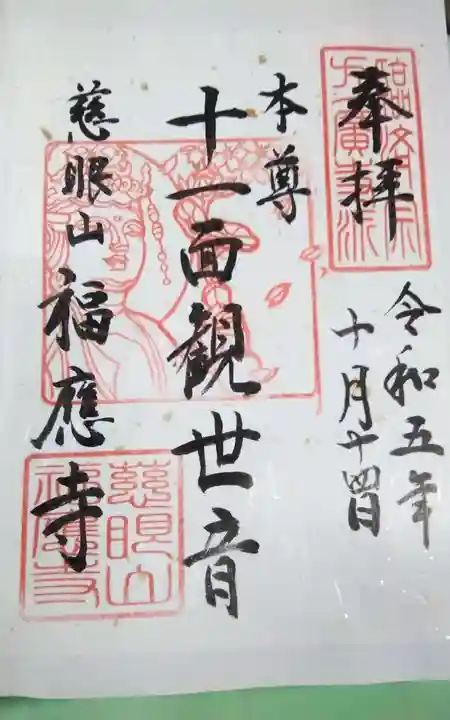 奉拝
令和五年
十月十四日
本尊
十一面観世音
慈眼山福應寺
慈眼山
福應寺